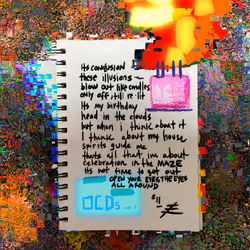 its confusion
these illusions ~
blow out like candles
only off, till re-lit
its my birthday
head in the clouds
but when i think about it
I think about my house
spirits guide me
thats all that im about
celebration in the MAZE
its not time to get out
OPEN YOUR EYES THE EYES
ALL AROUND
OCDs vol. 1